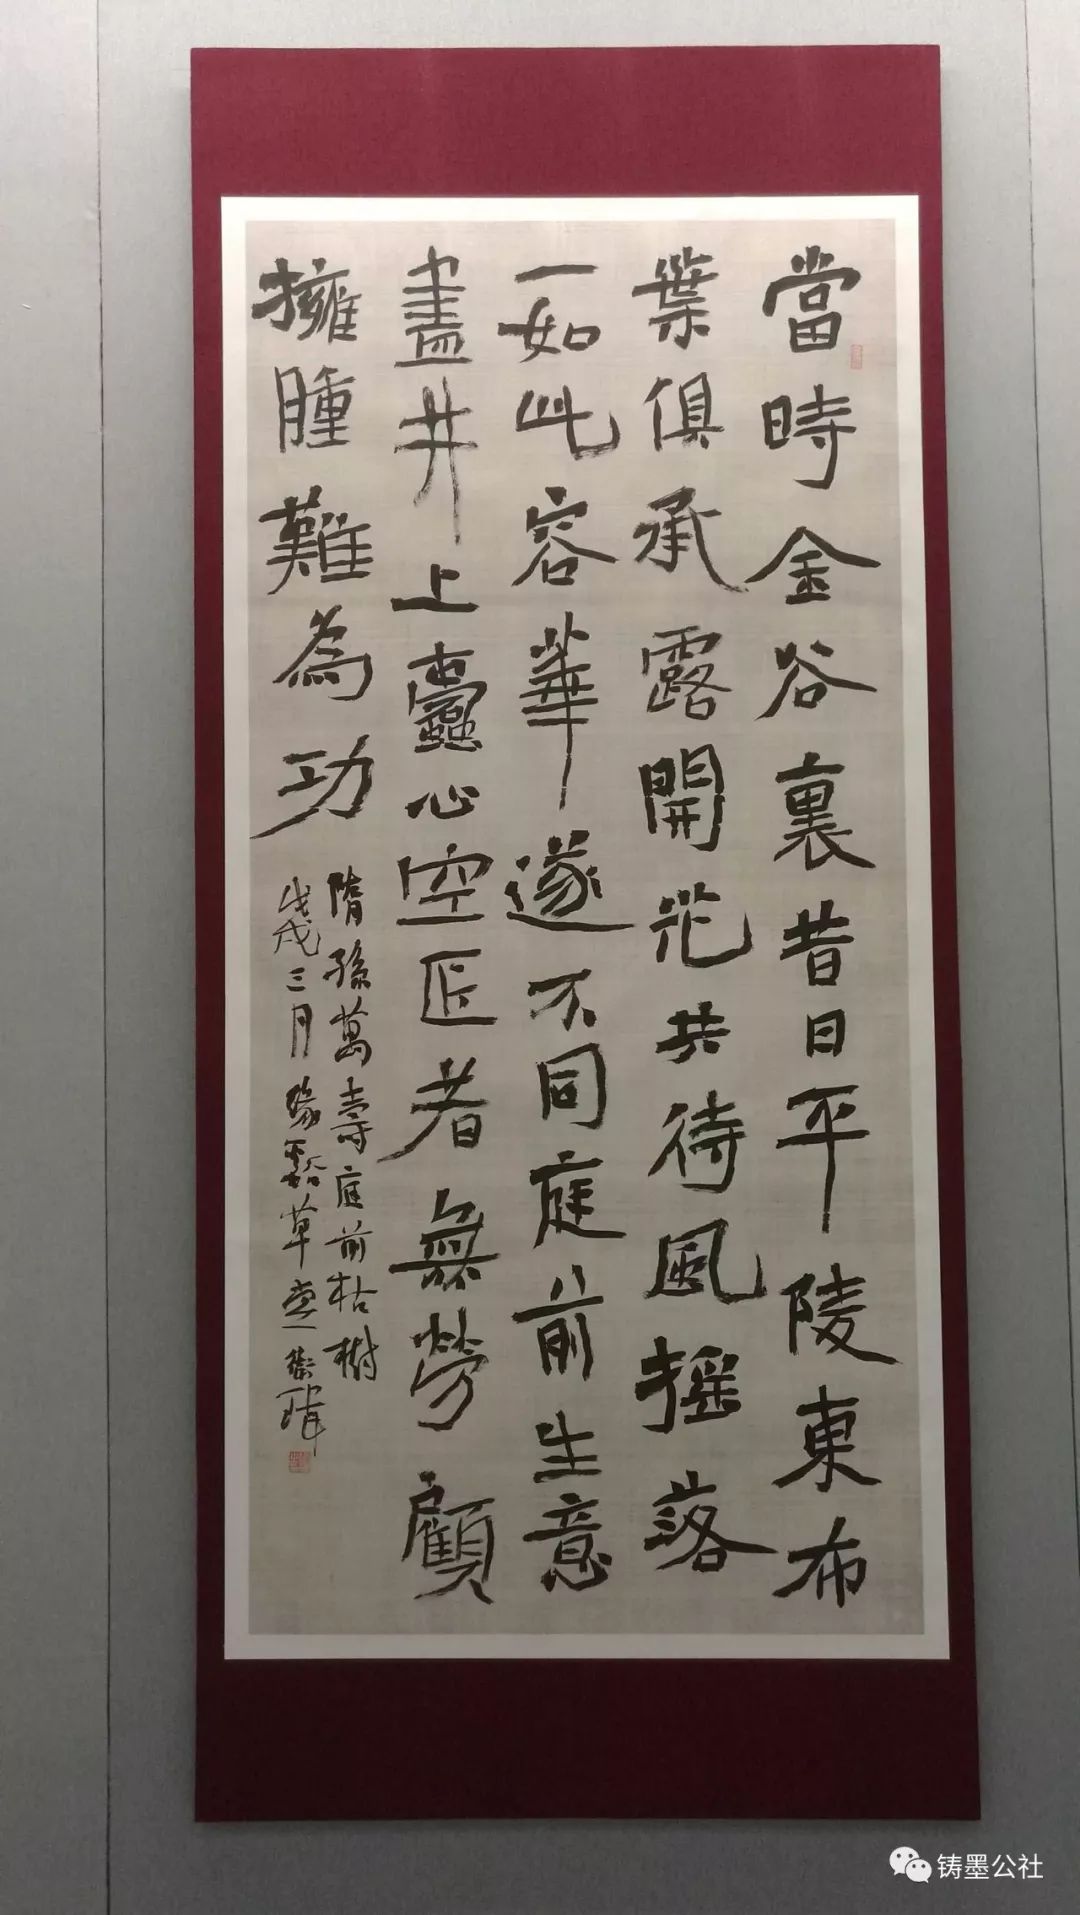 當時金谷裏昔日平陵東布
葉俱承露開花共待風摇落
一如此容華遂不同庭前生意
盡井上蠹心空匠者無勞顧
擁腫難為功
隋孫萬壽庭前枯樹
戊戌三月
草堂
铸墨公社